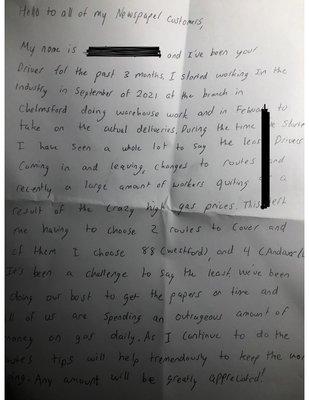 Hello to all of my Newspaper Customers,
My name is and I've been your
Driver for the past 3 months. I started working In the
Industry in September of 2021 at the branch in
Chelmsford doing warehouse work and in to
take on the actual deliveries. During the time
I have seen a whole lot to say the least. Drivers
Coming in and leaving, changes to routes and
recently a large amount of workers quiting a
result of the Crazy high gas prices. This left
me having to choose 2 routes to Cover and
of them I choose 88 (Westford), and 4
It's been a challenge to Say the least. We've been
doing our best to get the papers on time and
all of us are spending an outrageous amount of
money on gas daily. As I continue to do the
tips will help tremendously to keep the
Any amount will be greatly appreciated!